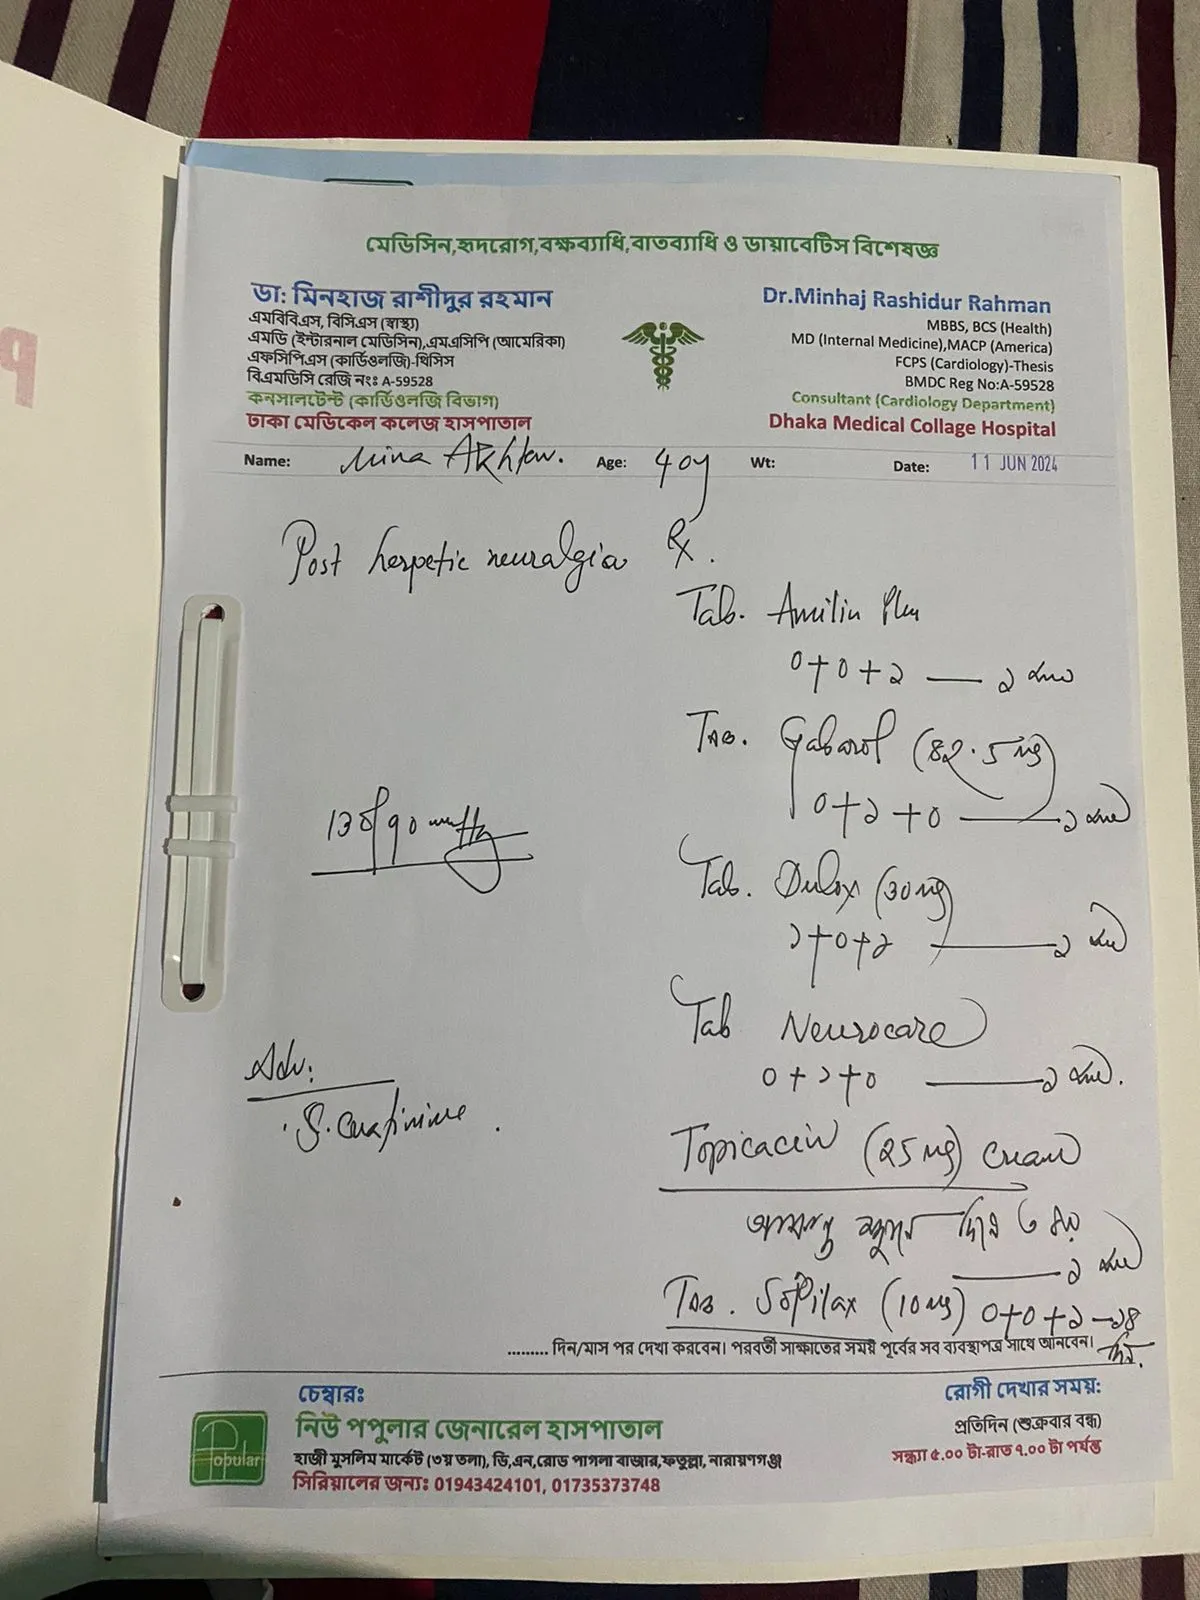 মেডিসিন,হৃদরোগ,বক্ষব্যাধি,বাতব্যাধি ও ডায়াবেটিস বিশেষজ্ঞ
ডা: মিনহাজ রাশীদুর রহমান
এমবিবিএস, বিসিএস (স্বাস্থ্য)
এমডি (ইন্টারনাল মেডিসিন),এমএসিপি (আমেরিকা)
এফসিপিএস (কার্ডিওলজি)-থিসিস
বিএমডিসি রেজি নং: A-59528
কনসালটেন্ট (কার্ডিওলজি বিভাগ)
ঢাকা মেডিকেল কলেজ হাসপাতাল
Dr.Minhaj Rashidur Rahman
MBBS, BCS (Health)
MD (Internal Medicine),MACP (America)
FCPS (Cardiology)-Thesis
BMDC Reg No:A-59528
Consultant (Cardiology Department)
Dhaka Medical Collage Hospital
Name: Mina Akhter. Age: 40y Wt: Date: 11 JUN 2024
Post herpetic neuralgia
130/90 mmHg
Adv:
S. Creatinine
Rx.
Tab. Amilin Plus
0+0+১ — ১ মাস
Tab. Gabarol (82.5 mg)
0+১+0 — ১ মাস
Tab. Dulox (30 mg)
১+0+১ — ১ মাস
Tab Neurocare
0+১+0 — ১ মাস.
Topicacin (25 mg) cream
আক্রান্ত স্থানে দিনে ৩ বার
— ১ মাস
Tab. (10 mg) 0+0+১ — ১৪
দিন.
......... দিন/মাস পর দেখা করবেন। পরবর্তী সাক্ষাতের সময় পূর্বের সব ব্যবস্থাপত্র সাথে আনবেন।
চেম্বার:
Popular
নিউ পপুলার জেনারেল হাসপাতাল
হাজী মুসলিম মার্কেট (৩য় তলা), ডি,এন,রোড পাগলা বাজার,ফতুল্লা, নারায়ণগঞ্জ
সিরিয়ালের জন্য: 01943424101, 01735373748
রোগী দেখার সময়:
প্রতিদিন (শুক্রবার বন্ধ)
সন্ধ্যা ৫.০০ টা-রাত ৭.০০ টা পর্যন্ত